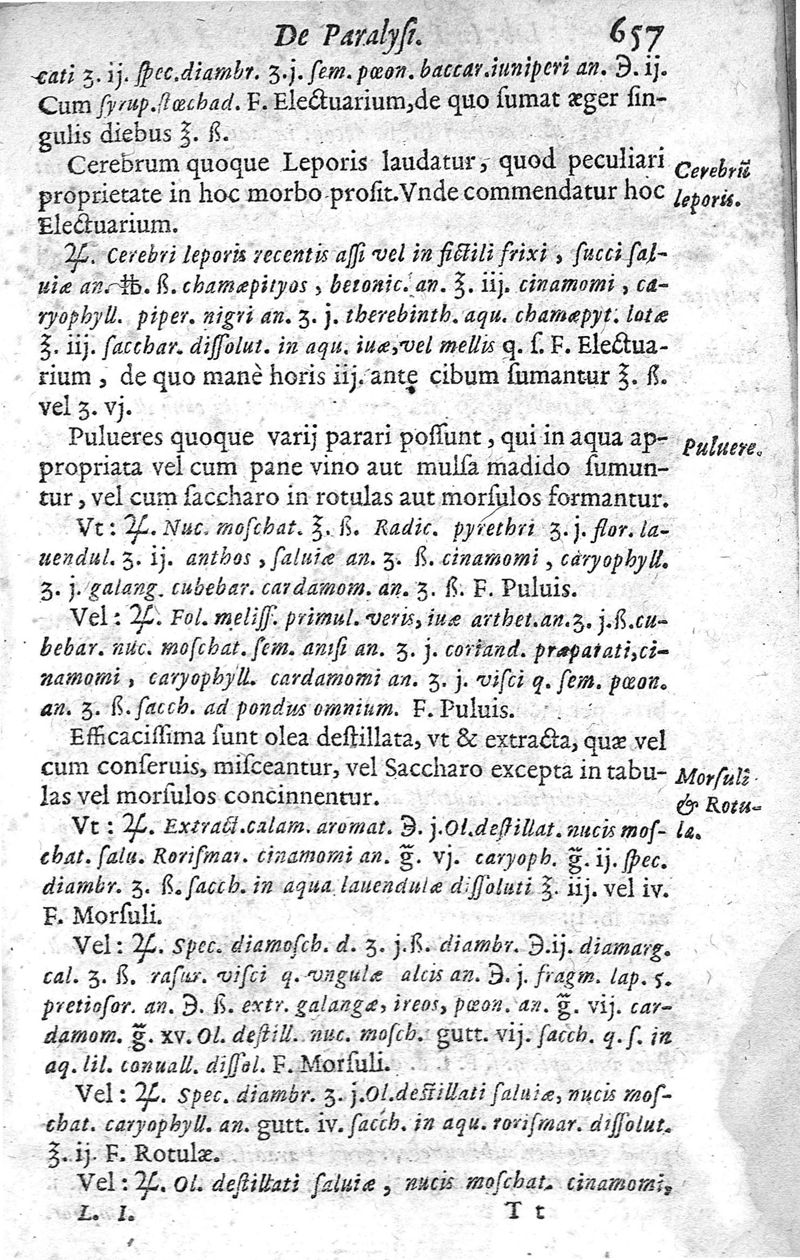 De Paralyſi. 657
cati ʒ. ij. ſpec.diambr. ʒ.j. ſem. pœon. baccar.iuniperi an. ℈. ij.
Cum ſyrup.ſtœchad. F. Electuarium,de quo ſumat æger ſin-
gulis diebus ℥. ß.
Cerebrum quoque Leporis laudatur, quod peculiari
proprietate in hoc morbo proſit.Vnde commendatur hoc
Electuarium.
Cerebrũ
leporis.
♃. Cerebri leporis recentis aſſi vel in fictili frixi, ſucci ſal-
uiæ an. ℔. ß. chamæpityos, betonic. an. ℥. iij. cinamomi, ca-
ryophyll. piper. nigri an. ʒ. j. therebinth. aqu. chamæpyt. lotæ
℥. iij. ſacchar. diſſolut. in aqu. iuæ,vel mellis q. ſ. F. Electua-
rium, de quo manè horis iij. ante cibum ſumantur ℥. ß.
vel ʒ. vj.
Pulueres quoque varij parari poſſunt, qui in aqua ap-
propriata vel cum pane vino aut mulſa madido ſumun-
tur, vel cum ſaccharo in rotulas aut morſulos formantur.
Puluere.
Vt: ♃. Nuc. moſchat. ℥. ß. Radic. pyrethri ʒ. j. flor. la-
uendul. ʒ. ij. anthos, ſaluiæ an. ʒ. ß. cinamomi, caryophyll.
ʒ. j. galang. cubebar. cardamom. an. ʒ. ß. F. Puluis.
Vel: ♃. Fol. meliſſ. primul. veris, iuæ arthet.an.ʒ. j.ß.cu-
bebar. nuc. moſchat. ſem. aniſi an. ʒ. j. coriand. præparati,ci-
namomi, caryophyll. cardamomi an. ʒ. j. viſci q. ſem. pœon.
an. ʒ. ß. ſacch. ad pondus omnium. F. Puluis.
Efficaciſſima ſunt olea deſtillata, vt & extracta, quæ vel
cum conſeruis, miſceantur, vel Saccharo excepta in tabu-
las vel morſulos concinnentur.
Morſuli
& Rotu-
la.
Vt: ♃. Extract.calam. aromat. ℈. j.Ol.deſtillat. nucis moſ-
chat. ſalu. Roriſmar. cinamomi an. g̃. vj. caryoph. g̃. ij. ſpec.
diambr. ʒ. ß. ſacch. in aqua lauendulæ diſſoluti ℥. iij. vel iv.
F. Morſuli.
Vel: ♃. Spec. diamoſch. d. ʒ. j.ß. diambr. ℈.ij. diamarg.
cal. ʒ. ß. raſur. viſci q. vngulæ alcis an. ℈. j. fragm. lap. 5.
pretioſor. an. ℈. ß. extr. galangæ, ireos, pœon. an. g̃. vij. car-
damom. g̃. xv. Ol. deſtill. nuc. moſch. gutt. vij. ſacch. q. ſ. in
aq. lil. conuall. diſſol. F. Morſuli.
Vel: ♃. Spec. diambr. ʒ. j.Ol.deſtillati ſaluiæ, nucis moſ-
chat. caryophyll. an. gutt. iv. ſacch. in aqu. roriſmar. diſſolut.
℥. ij. F. Rotulæ.
Vel: ♃. Ol. deſtillati ſaluiæ, nucis moſchat. cinamomi,
L. I. T t